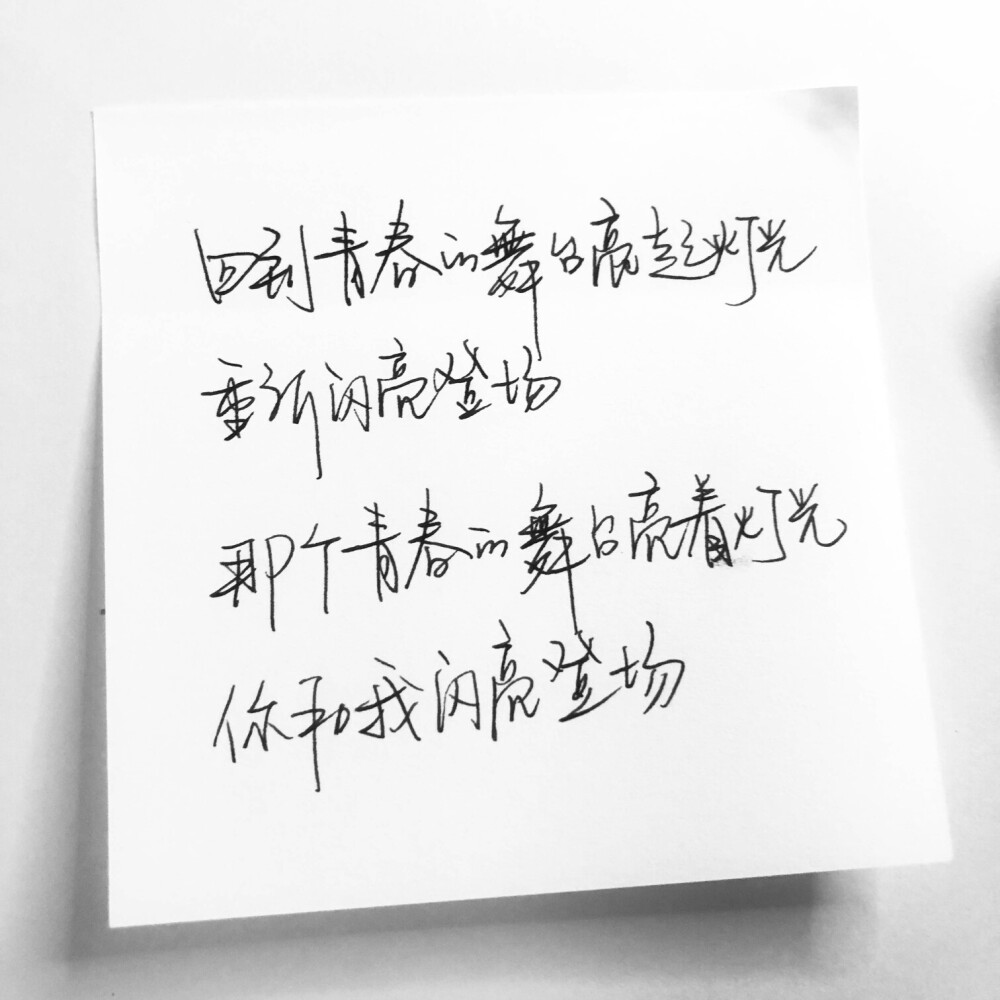 回到青春的舞台亮起灯光
重新闪亮登场
那个青春的舞台亮着灯光
你和我闪亮登场